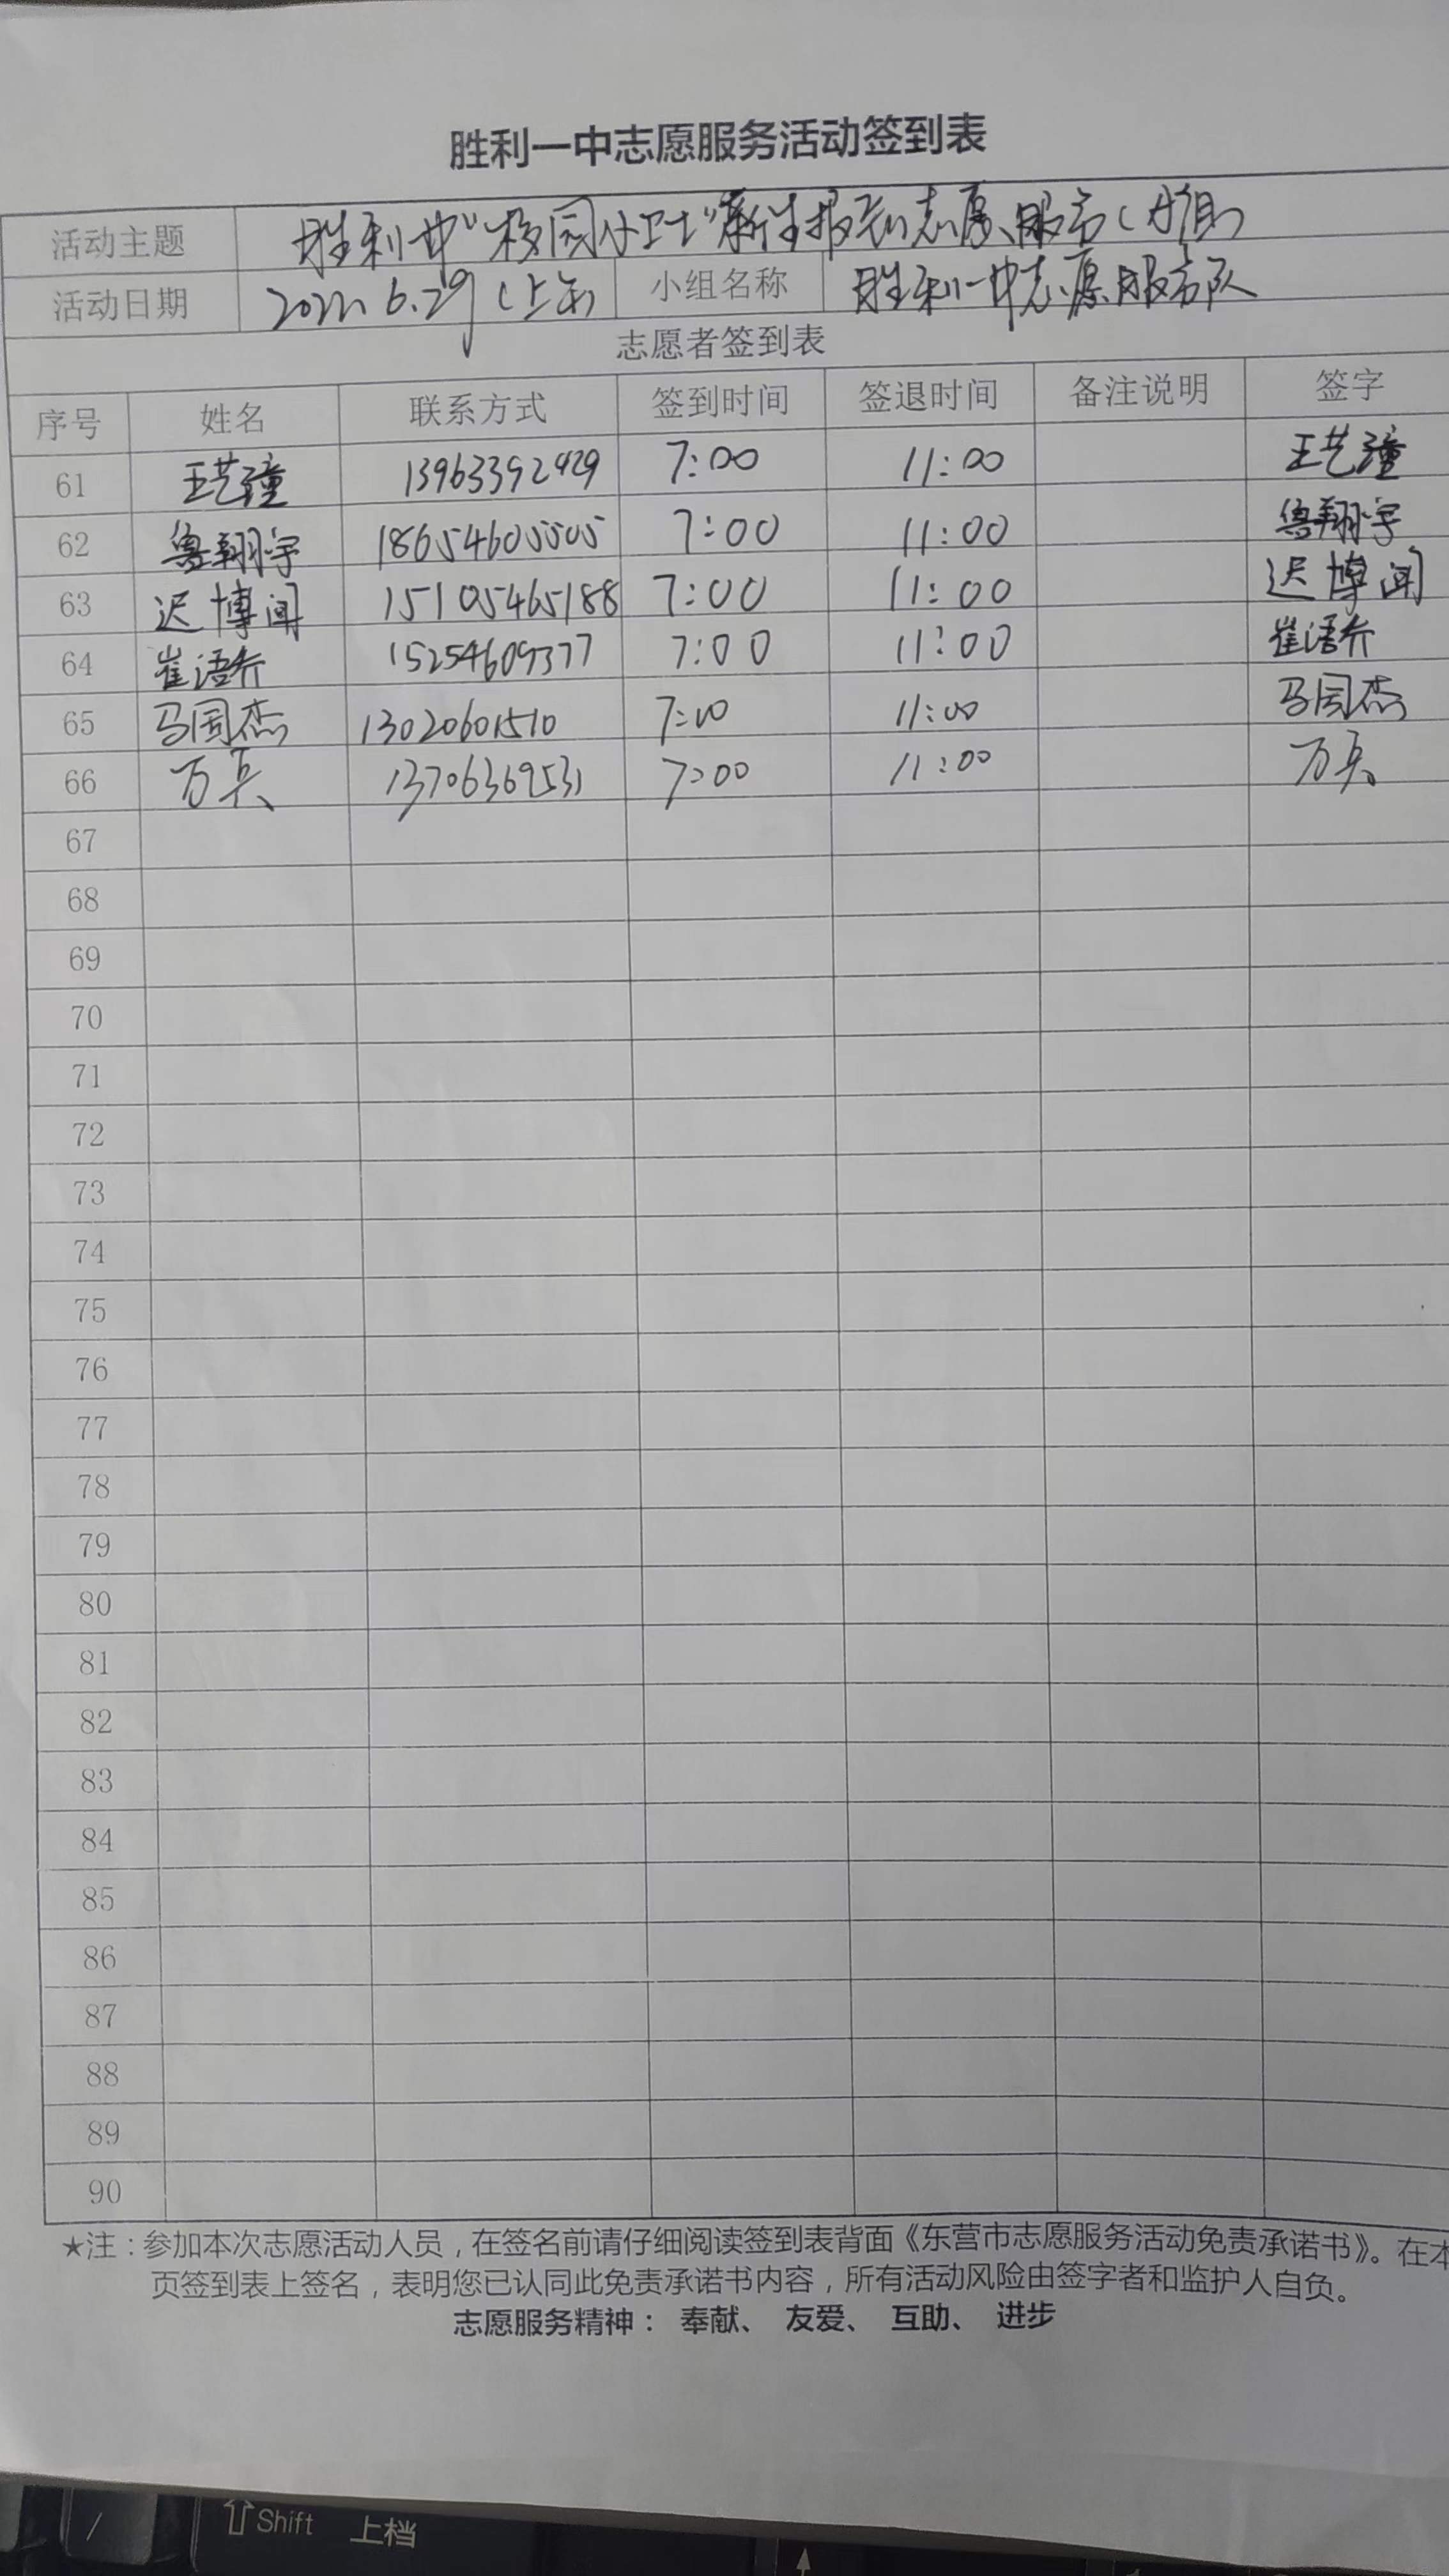 胜利一中志愿服务活动签到表
活动主题 胜利一中“校园小卫士”新生报到志愿服务
活动日期 2022.6.29(上午) 小组名称 胜利一中志愿服务队
志愿者签到表
序号 姓名 联系方式 签到时间 签退时间 备注说明 签字
61 王艺潼 13963392929 7:00 11:00 王艺潼
62 鲁翔宇 18654605505 7:00 11:00 鲁翔宇
63 迟博闻 15105465188 7:00 11:00 迟博闻
64 崔语乔 15254609377 7:00 11:00 崔语乔
65 马国杰 13020601510 7:00 11:00 马国杰
66 万兵 13706369531 7:00 11:00 万兵
67
68
69
70
71
72
73
74
75
76
77
78
79
80
81
82
83
84
85
86
87
88
89
90
★注：参加本次志愿活动人员，在签名前请仔细阅读签到表背面《东营市志愿服务活动免责承诺书》。在本
页签到表上签名，表明您已认同此免责承诺书内容，所有活动风险由签字者和监护人自负。
志愿服务精神： 奉献、 友爱、 互助、 进步
/ ⇧Shift 上档